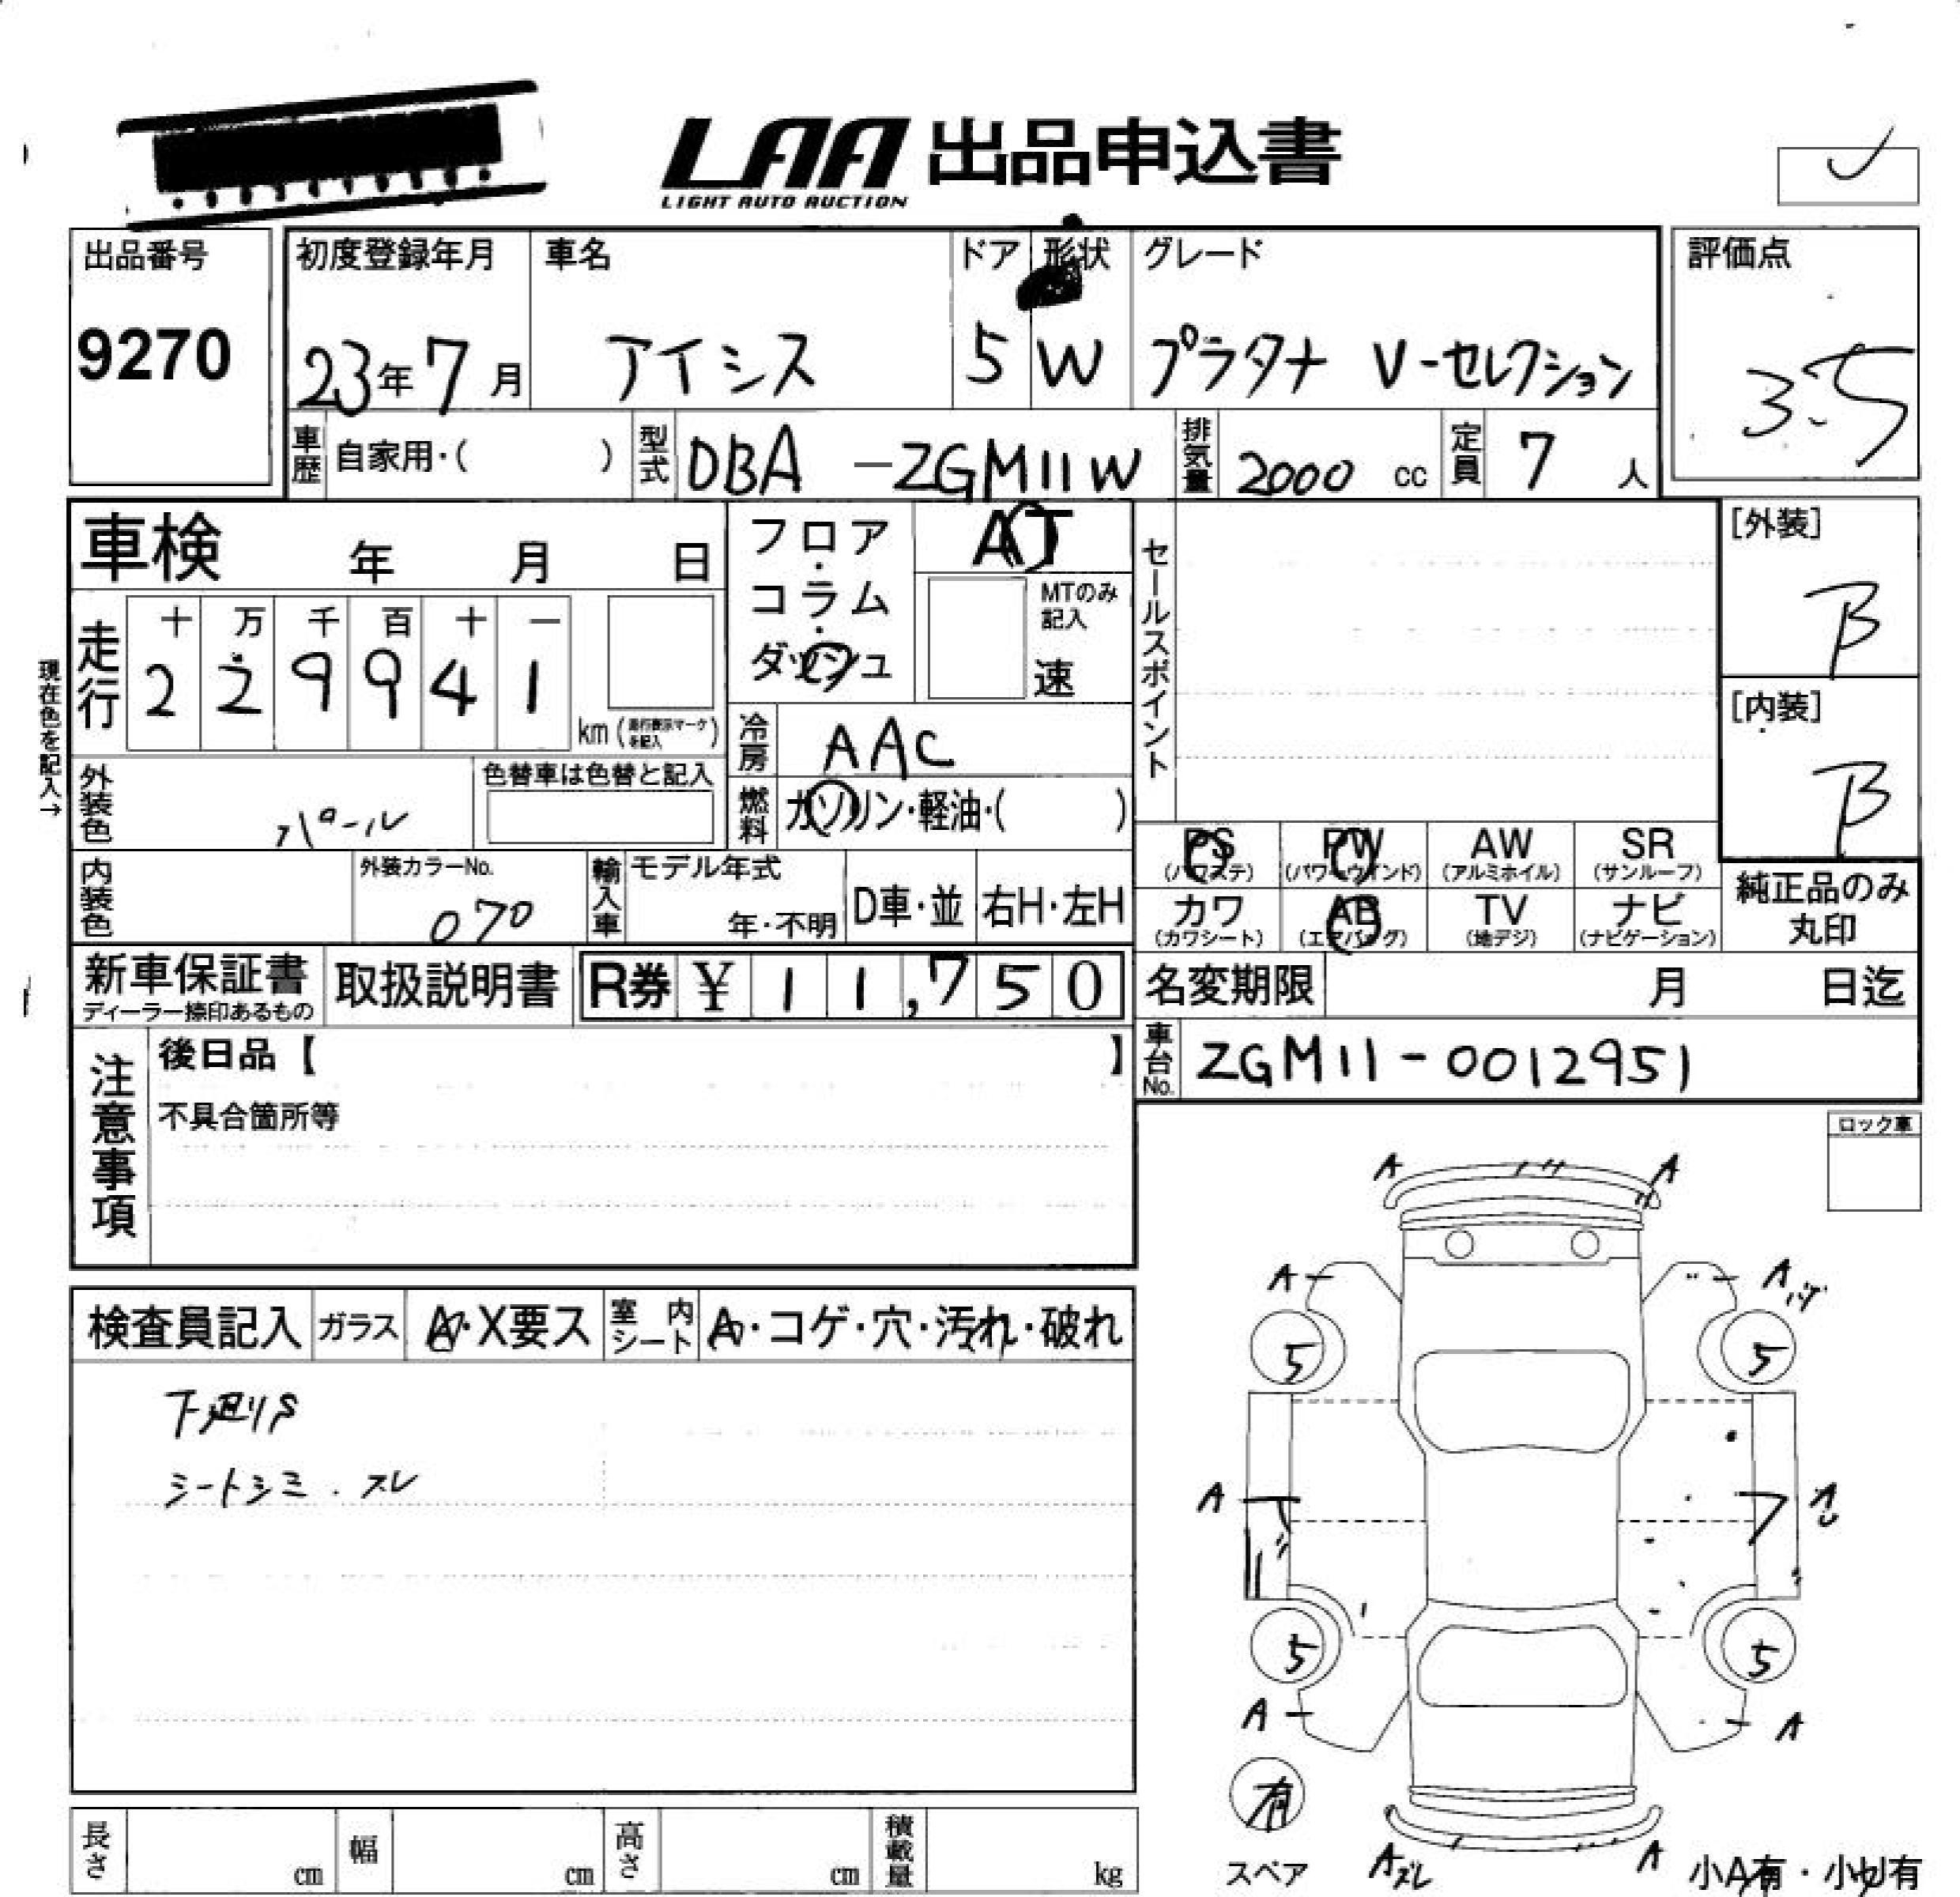 LAA 出品申込書
LIGHT AUTO AUCTION
出品番号
9270
初度登録年月
23年7月
車名
アイシス
ドア
5
形状
W
グレード
プラタナ V-セレクション
評価点
3.5
車歴 自家用・( )
型式 DBA -ZGM11W
排気量 2000 cc
定員 7 人
車検 年 月 日
フロア・コラム・ダッシュ
AT
MTのみ記入
速
セールスポイント
[外装]
B
[内装]
B
現在色を記入→
走行
十 万 千 百 十 一
2 2 9 9 4 1
km (走行表示マークを記入)
冷房 AAC
外装色 パール
色替車は色替と記入
燃料 ガソリン・軽油・( )
PS (パワステ)
PW (パワーウインド)
AW (アルミホイル)
SR (サンルーフ)
カワ (カワシート)
AB (エアバッグ)
TV (地デジ)
ナビ (ナビゲーション)
純正品のみ丸印
内装色
外装カラーNo.
070
輸入車
モデル年式
年・不明
D車・並
右H・左H
新車保証書
ディーラー捺印あるもの
取扱説明書
R券 ¥ 11,750
名変期限 月 日迄
車台No. ZGM11-0012951
注意事項
後日品【 】
不具合箇所等
ロック車
検査員記入 ガラス A・X要ス 室内シート A・コゲ・穴・汚れ・破れ
下廻りS
シートシミ.スレ
A A
A A
5 5
A
5 5
A A
有
スペア
Aズレ A
小A有・小U有
長さ cm
幅 cm
高さ cm
積載量 kg